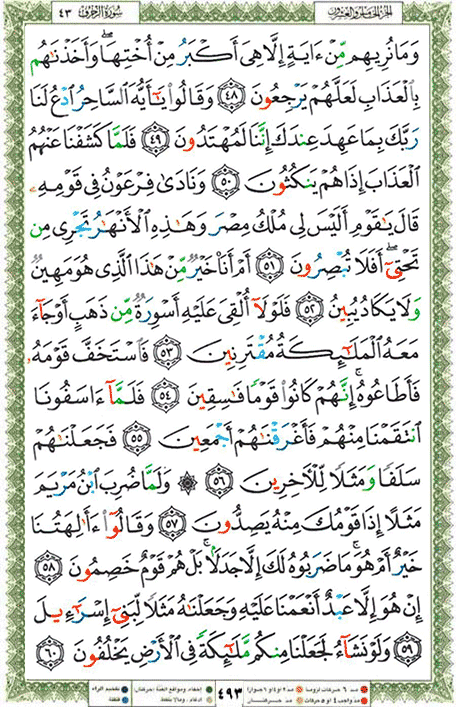 سورة الزخرف ٤٣
الجزء الخامس والعشرون
وَمَا نُرِيهِم مِّنْ ءَايَةٍ إِلَّا هِىَ أَكْبَرُ مِنْ أُخْتِهَا ۖ وَأَخَذْنَٰهُم
بِالْعَذَابِ لَعَلَّهُمْ يَرْجِعُونَ ٤٨ وَقَالُوا۟ يَٰٓأَيُّهَ السَّاحِرُ ادْعُ لَنَا
رَبَّكَ بِمَا عَهِدَ عِندَكَ إِنَّنَا لَمُهْتَدُونَ ٤٩ فَلَمَّا كَشَفْنَا عَنْهُمُ
الْعَذَابَ إِذَا هُمْ يَنكُثُونَ ٥٠ وَنَادَىٰ فِرْعَوْنُ فِى قَوْمِهِۦ
قَالَ يَٰقَوْمِ أَلَيْسَ لِى مُلْكُ مِصْرَ وَهَٰذِهِ الْأَنْهَٰرُ تَجْرِى مِن
تَحْتِىٓ ۖ أَفَلَا تُبْصِرُونَ ٥١ أَمْ أَنَا۠ خَيْرٌ مِّنْ هَٰذَا الَّذِى هُوَ مَهِينٌ
وَلَا يَكَادُ يُبِينُ ٥٢ فَلَوْلَآ أُلْقِىَ عَلَيْهِ أَسْوِرَةٌ مِّن ذَهَبٍ أَوْ جَآءَ
مَعَهُ الْمَلَٰٓئِكَةُ مُقْتَرِنِينَ ٥٣ فَاسْتَخَفَّ قَوْمَهُۥ
فَأَطَاعُوهُ ۚ إِنَّهُمْ كَانُوا۟ قَوْمًا فَٰسِقِينَ ٥٤ فَلَمَّآ ءَاسَفُونَا
انتَقَمْنَا مِنْهُمْ فَأَغْرَقْنَٰهُمْ أَجْمَعِينَ ٥٥ فَجَعَلْنَٰهُمْ
سَلَفًا وَمَثَلًا لِّلْءَاخِرِينَ ٥٦ ۞ وَلَمَّا ضُرِبَ ابْنُ مَرْيَمَ
مَثَلًا إِذَا قَوْمُكَ مِنْهُ يَصِدُّونَ ٥٧ وَقَالُوٓا۟ ءَأَٰلِهَتُنَا
خَيْرٌ أَمْ هُوَ ۚ مَا ضَرَبُوهُ لَكَ إِلَّا جَدَلًۢا ۚ بَلْ هُمْ قَوْمٌ خَصِمُونَ ٥٨
إِنْ هُوَ إِلَّا عَبْدٌ أَنْعَمْنَا عَلَيْهِ وَجَعَلْنَٰهُ مَثَلًا لِّبَنِىٓ إِسْرَٰٓءِيلَ
٥٩ وَلَوْ نَشَآءُ لَجَعَلْنَا مِنكُم مَّلَٰٓئِكَةً فِى الْأَرْضِ يَخْلُفُونَ ٦٠
مد ٦ حركات لزوما
مد ٢ او ٤ او ٦ جوازا
إخفاء، ومواقع الغنة (حركتان)
تفخيم الراء
مد واجب ٤ او ٥ حركات
مد حركتان
ادغام، وما لا يلفظ
قلقلة
٤٩٣